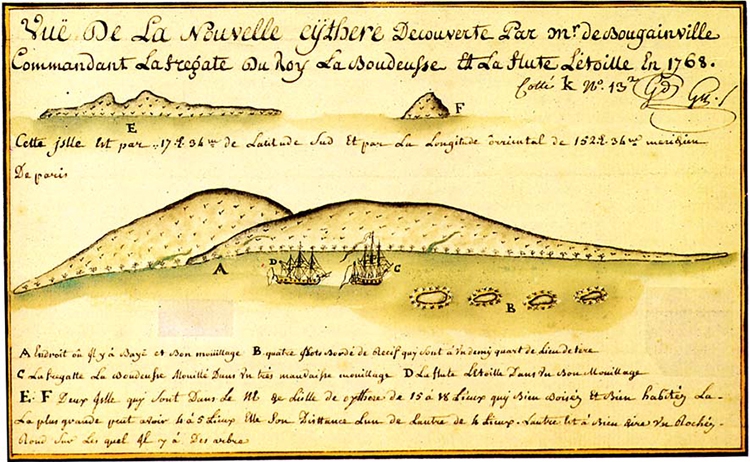 Vuë De La Nouvelle cÿthere Decouverte Par mr. de Bougainville
Commandant La fregate Du Roy La Boudeusse Et La flute L'étoille En 1768.
Cotté k No. 13
E
F
Cette jslle Est par 17 36 de Latitude Sud Et par La Longitude orriental de 152 36 meridien
De paris
A
D
C
B
A Endroit où jl y à Baye et Bon mouillage B. quatre jslots Bordé de Recif quy sont à un demy quart de Lieu de tere
C La fregatte La Boudeusse Mouillé Dans un très mauvaisse mouillage D La flute L'étoille Dans un Bon Mouillage
E. F Deux jslle quy sont Dans Le de Lisle de cythere de 15 à 18 Lieux quy Bien Boisés Et Bien habités La
La plus grande peut avoir 4 à 5 Lieux Elle son Disttance L'un de Lautre de 4 Lieux. Lautre Est à Bien dire un Rochés
Rond Sur Les quel jl y à Des arbre